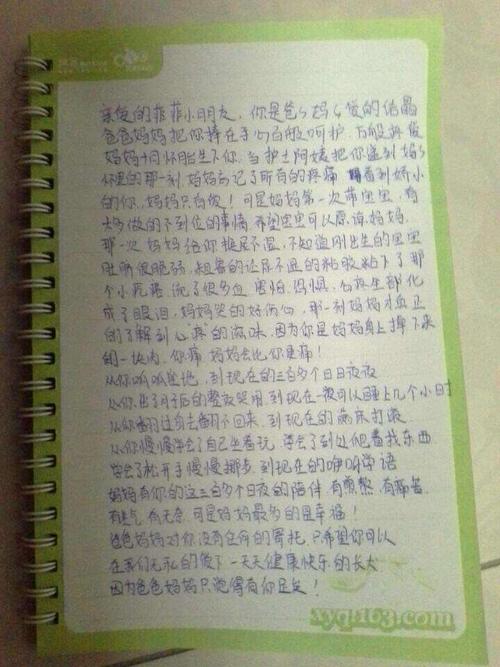 亲爱的菲菲小朋友，你是爸爸妈妈爱的结晶
爸爸妈妈把你捧在手心百般呵护，万般疼爱
妈妈十月怀胎生下你，当护士阿姨把你递到妈妈
怀里的那一刻，妈妈忘记了所有的疼痛 看到娇小
的你，妈妈只有爱！可是妈妈第一次带宝宝，有
太多做的不到位的事情，希望宝宝可以原谅妈妈，
那一次 妈妈给你换尿不湿，不知道刚出生的宝宝
肚脐很脆弱，粗鲁的让尿不湿的粘胶粘下了那
个小死疙，流了很多血 害怕，恐惧，自责全部化
成了眼泪，妈妈哭的好伤心，那一刻妈妈才真正
的了解到心疼的滋味，因为你是妈妈身上掉下来
的一块肉，你痛 妈妈会比你更痛！
从你呱呱坠地，到现在的三百多个日日夜夜
从你出了月子后的整夜哭闹，到现在一夜可以睡上几个小时
从你翻过身去翻不回来，到现在的满床打滚
从你慢慢学会了自己坐着玩，学会了到处爬着找东西
学会了松开手慢慢挪步，到现在的咿呀学语
妈妈有你的这三百多个日夜的陪伴，有煎熬，有痛苦
有生气，有无奈，可是妈妈最多的是幸福！
爸爸妈妈对你没有任何的寄托，只希望你可以
在我们无私的爱下一天天健康快乐的长大
因为爸爸妈妈只觉得有你足矣！
xyqa163.com